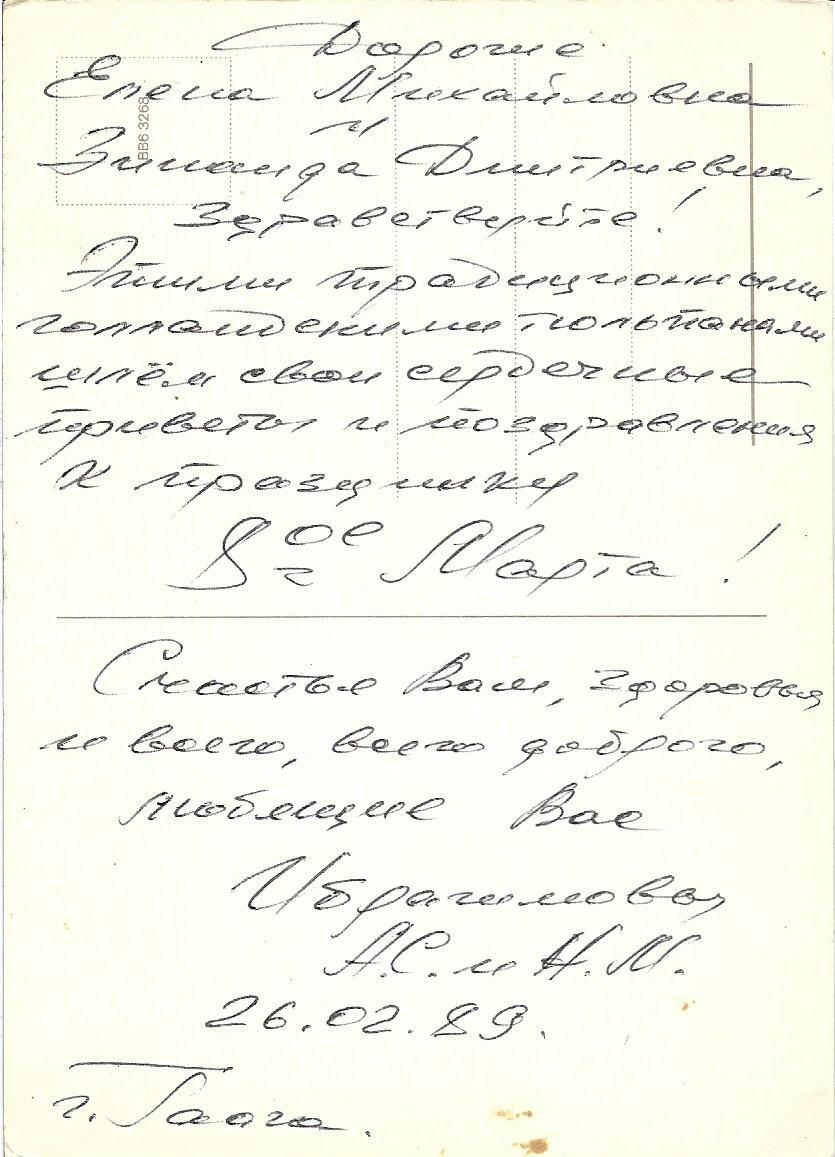 Дорогие
Елена Михайловна
и
Зинаида Дмитриевна,
Здравствуйте!
Этими традиционными
голландскими тюльпанами
шлём свои сердечные
приветы и поздравления
к празднику
8ое Марта!
Счастья Вам, здоровья
и всего, всего доброго,
любящие Вас
Ибрагимовы
А.С. и Н.М.
26.02.89.
г. Гаага.
BB6 3268